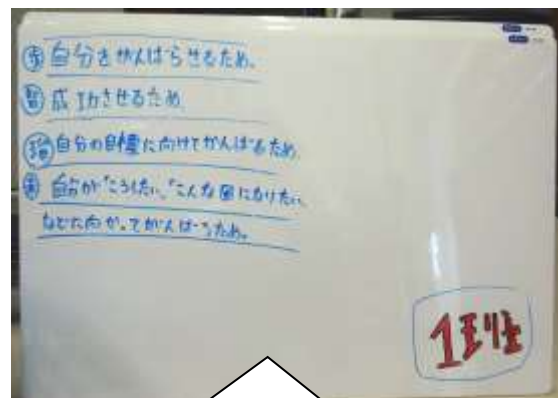 自分をがんばらせるため。
成功させるため
自分の目標に向けてがんばるため。
自分が「こうしたい、「こんな風になりたい
などに向かってがんばるため。
1班